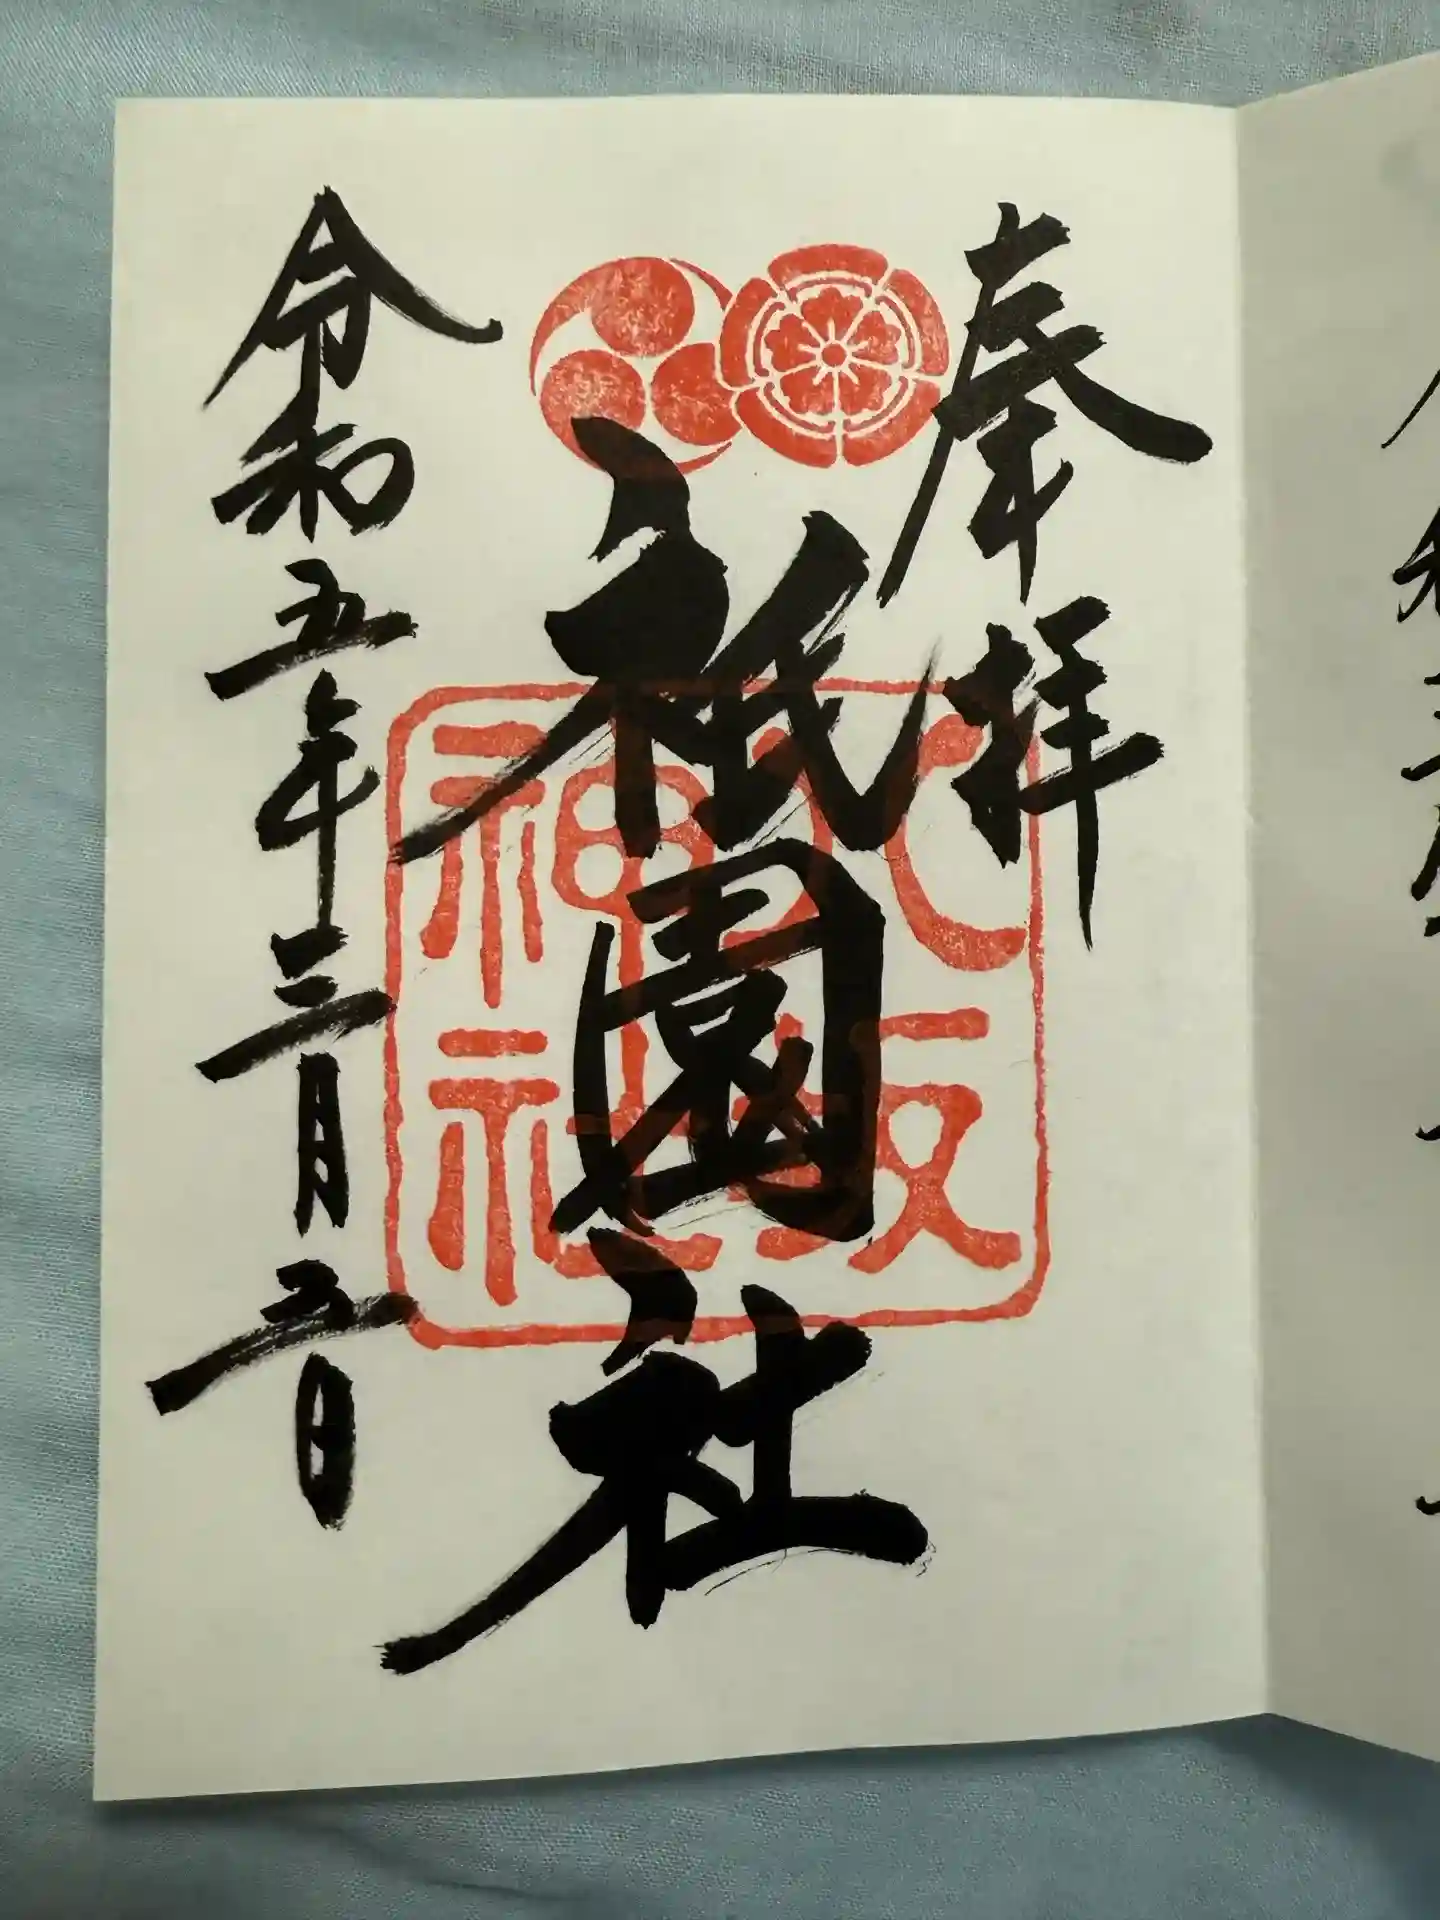 奉拝
祇園社
八坂
神社
令和五年三月五日